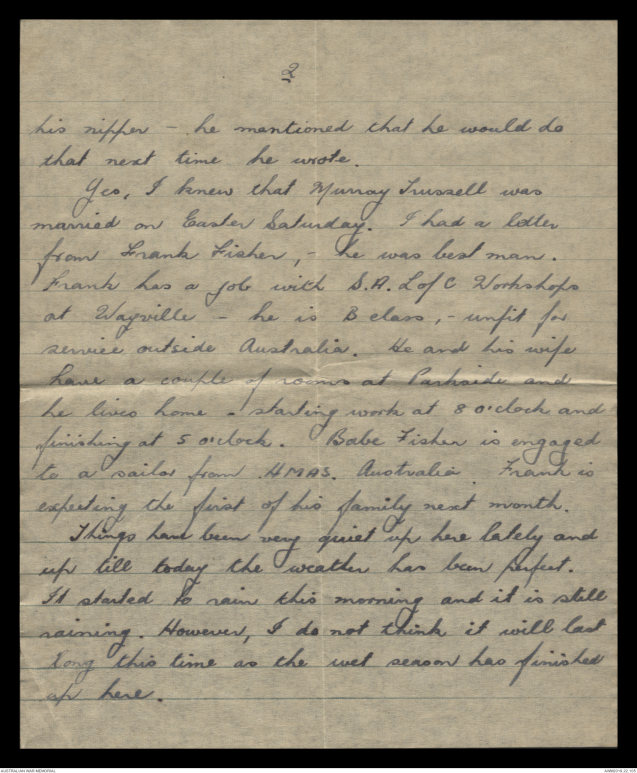 2
his nipper - he mentioned that he would do
that next time he wrote.
Yes, I knew that Murray Trussell was
married on Easter Saturday. I had a letter
from Frank Fisher, - he was best man.
Frank has a job with S.A. L of C Workshops
at Wayville - he is B class, - unfit for
service outside Australia. He and his wife
have a couple of rooms at Parkside and
he lives home - starting work at 8 o'clock and
finishing at 5 o'clock. Babe Fisher is engaged
to a sailor from HMAS. Australia. Frank is
expecting the first of his family next month.
Things have been very quiet up here lately and
up till today the weather has been perfect.
It started to rain this morning and it is still
raining. However, I do not think it will last
long this time as the wet season has finished
up here.
AUSTRALIAN WAR MEMORIAL